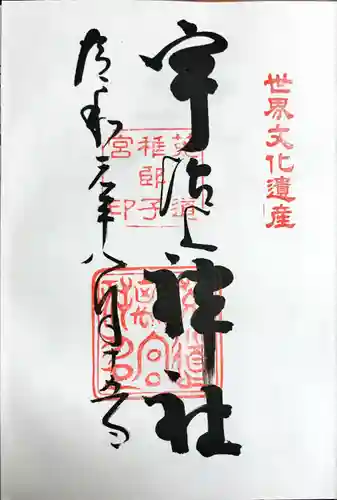 世界文化遺産
宇治上神社
令和元年八月十五日
菟道
稚郎子
宮印